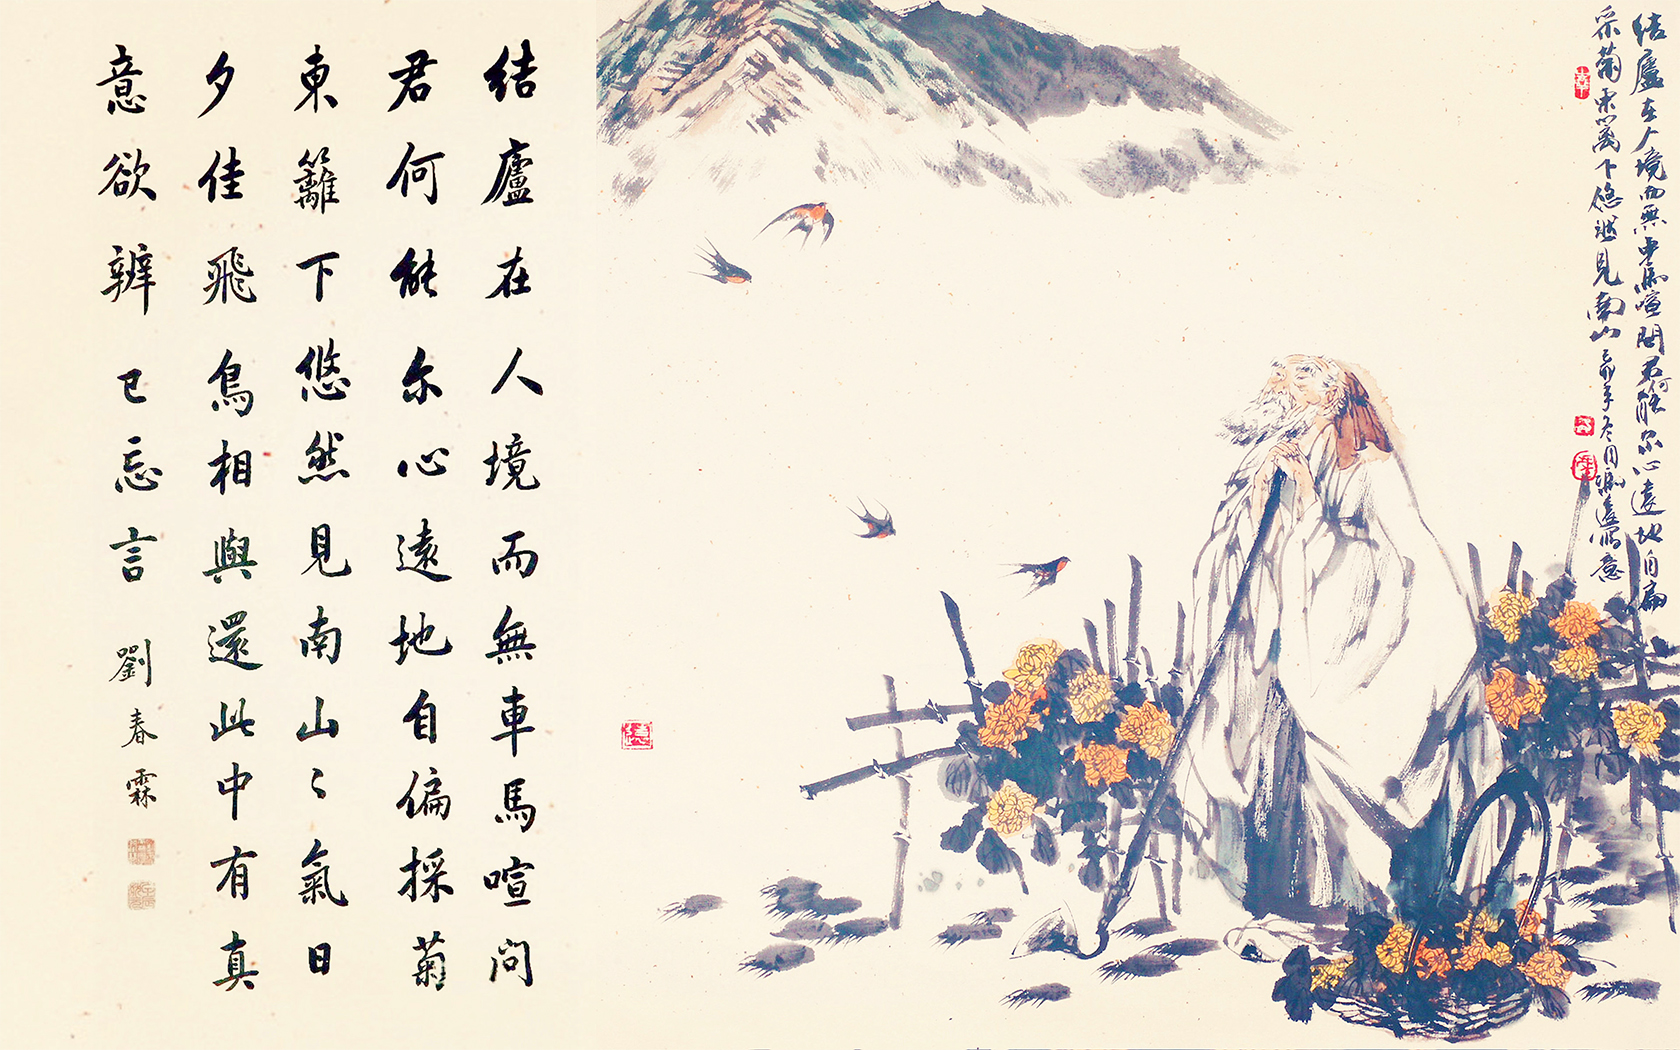 结廬在人境而無車馬喧問君何能尔心遠地自偏
采菊東篱下悠然見南山
結廬在人境而無車馬喧問
君何能尔心遠地自偏採菊
東籬下悠然見南山〻氣日
夕佳飛鳥相與還此中有真
意欲辨已忘言 劉春霖